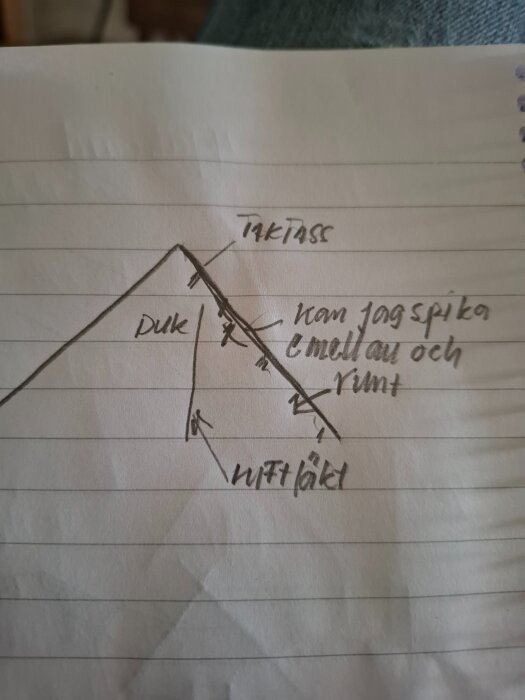 TAKTASS
Duk
kan jag spika
emellan och
runt
luftläkt